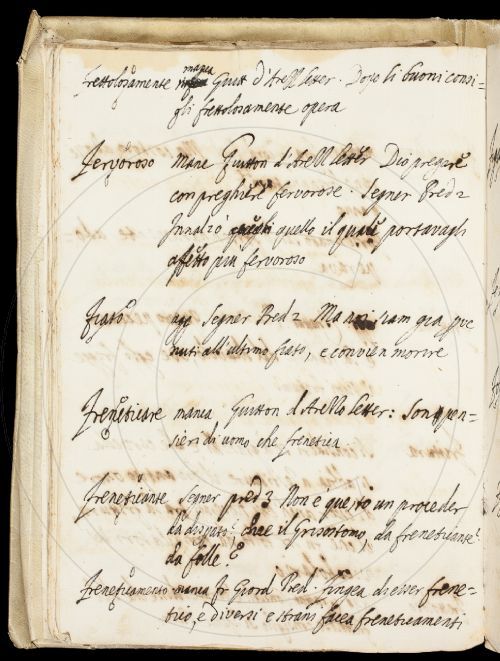 Frettolosamente manca Guitt d'Arezz letter. Dopo li buoni consi=
gli frettolosamente opera
Fervoroso manc Guitton d'Arezz letter Dio pregare
con preghiere fervorose. Segner Pred 2
Innalzò quello il quale portavagli
affetto più fervoroso
Fiato agg Segner Pred 2 Ma siam già ve
nuti all'ultimo fiato, e convien morire
Freneticare manca Guitton d'Arezzo Letter: Son pen=
sieri di uomo che frenetica
Freneticante Segner pred 3 Non è questo un proceder
da disperato, dice il Grisostomo, da freneticante
da folle?
Freneticamento manca Fr Giord Pred. Fingea di esser frene=
tico, e diversi e strani facea freneticamenti